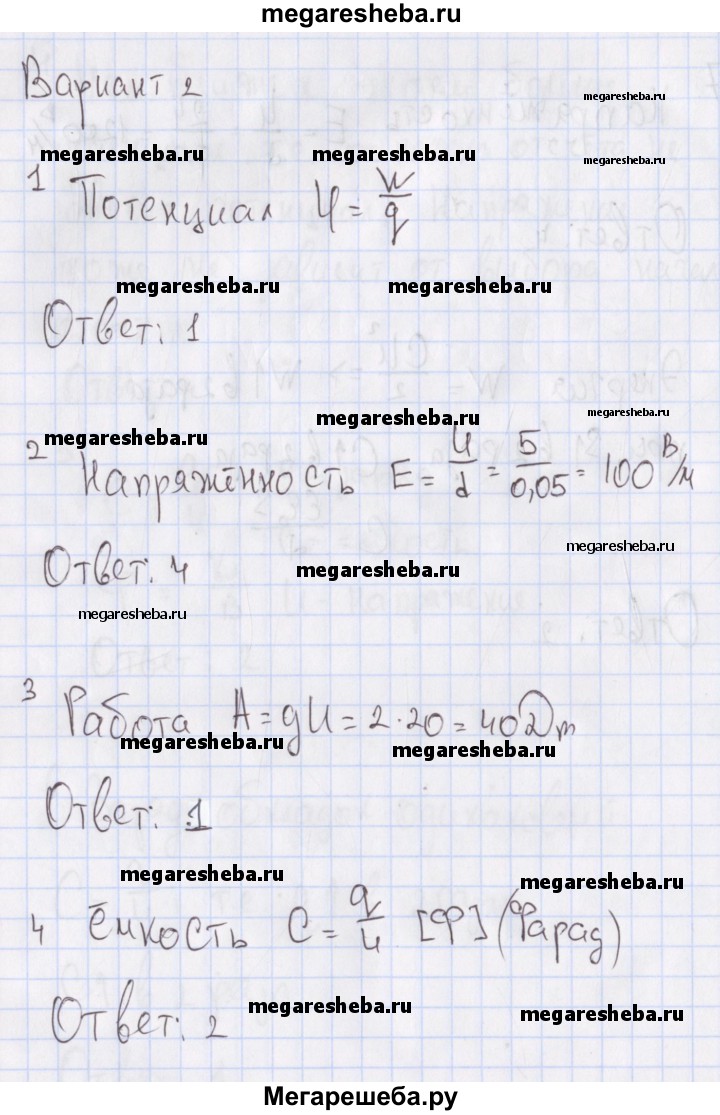 megaresheba.ru
Вариант 2
megaresheba.ru
megaresheba.ru megaresheba.ru megaresheba.ru
1 Потенциал φ = W/q
megaresheba.ru megaresheba.ru
Ответ: 1
megaresheba.ru megaresheba.ru
megaresheba.ru
2 Напряжённость E = U/d = 5/0,05 = 100 В/м
Ответ: 4
megaresheba.ru
megaresheba.ru
megaresheba.ru
3 Работа A = qU = 2·20 = 40 Дж
megaresheba.ru megaresheba.ru
Ответ: 1
megaresheba.ru megaresheba.ru
4 Ёмкость C = q/U [Ф] (Фарад)
megaresheba.ru megaresheba.ru
Ответ: 2
Мегарешеба.ру